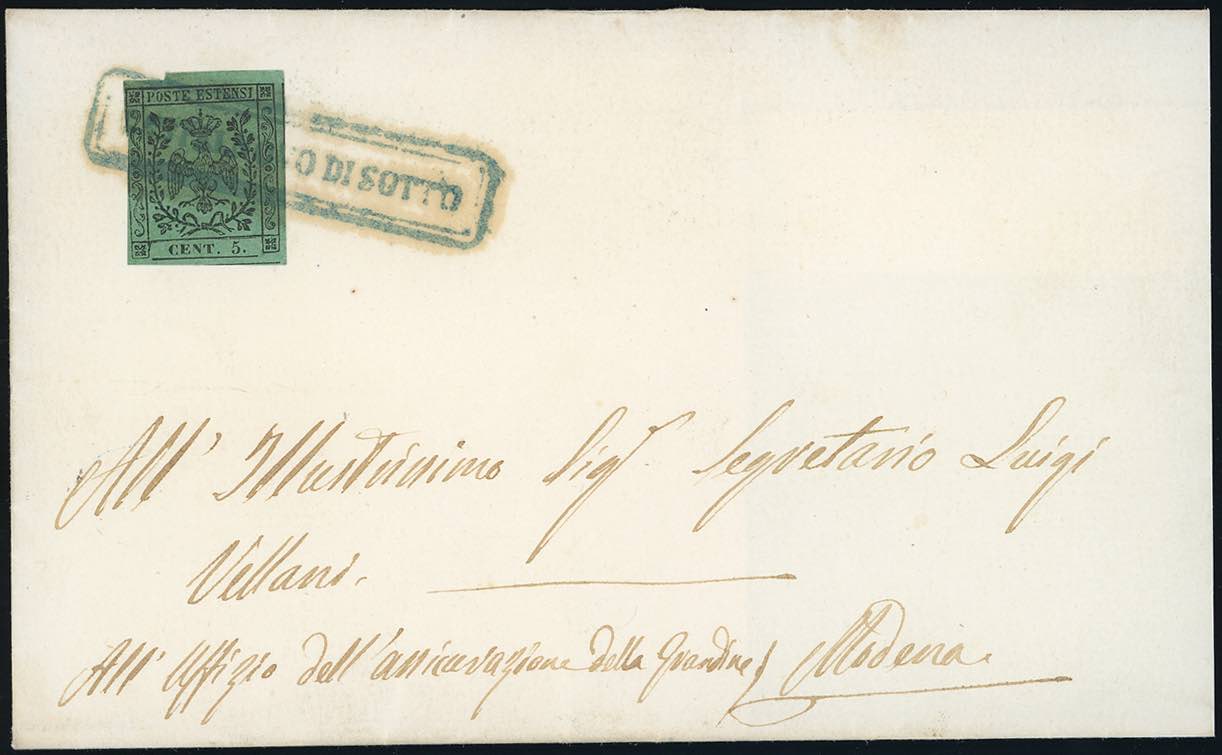 POSTE ESTENSI
O DI SOTTO
CENT. 5.
All' Illustrissimo Sigr Segretario Luigi
Vellani.
All' Uffizio dell'assicurazione della Grandine / Modena.